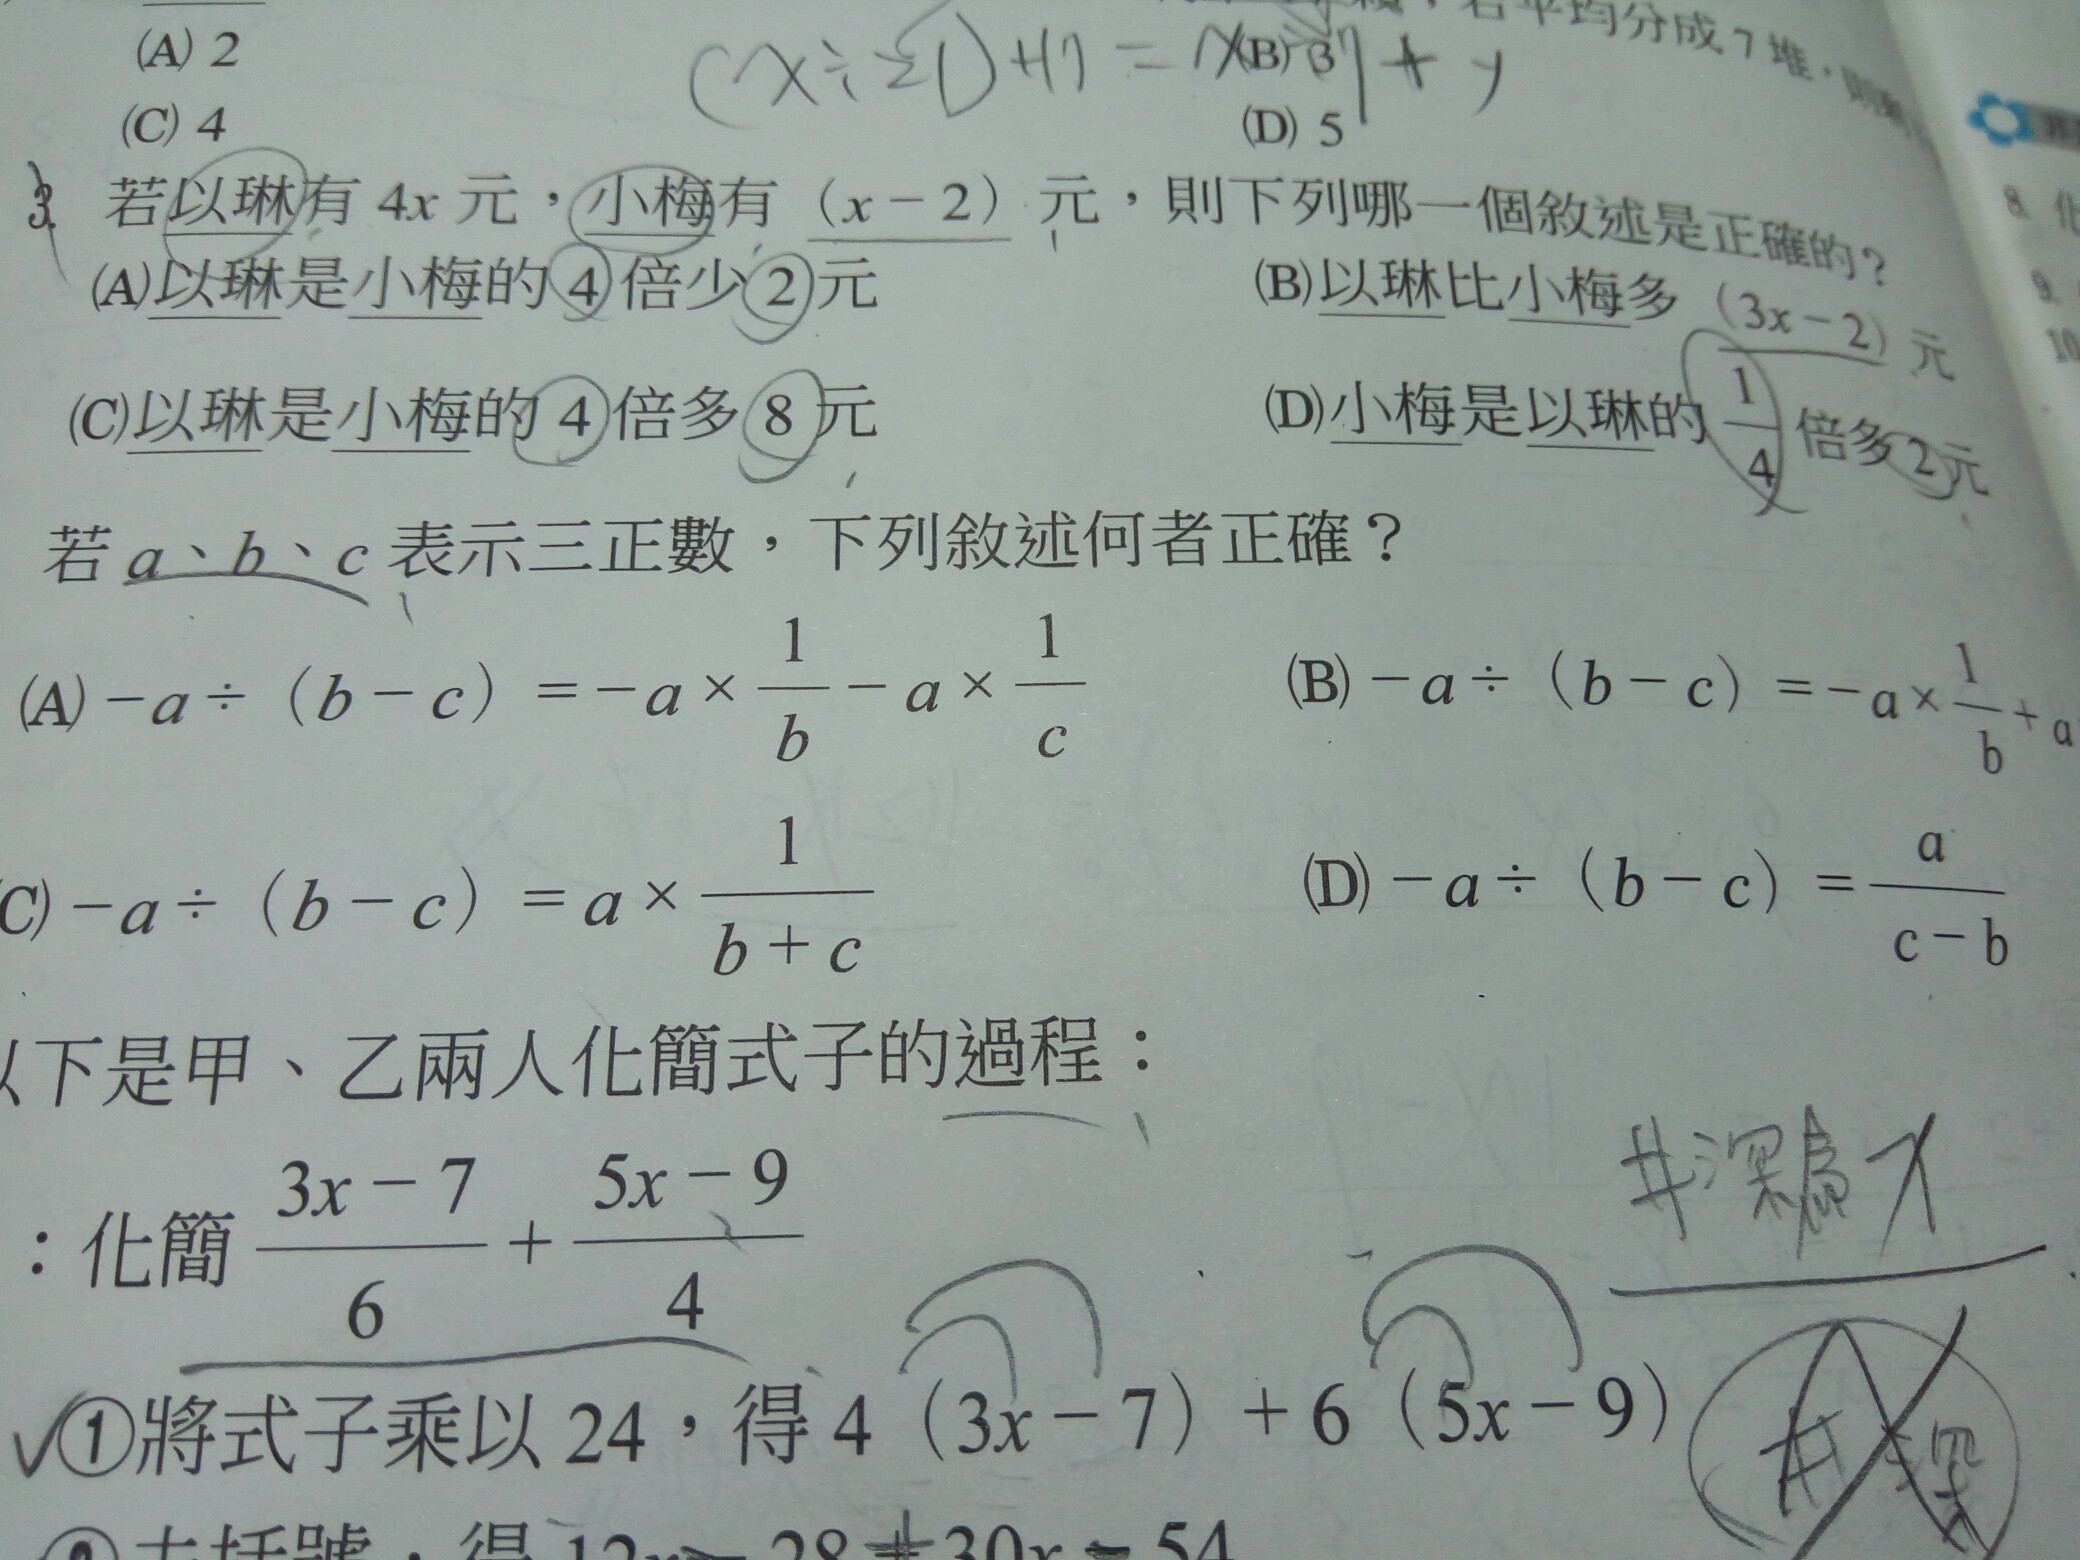 若平均分成 7 堆，
(A) 2
(B) 3
(x÷
(C) 4
(D) 5
3. 若以琳有 4x 元，小梅有（x－2）元，則下列哪一個敘述是正確的？
(A)以琳是小梅的 4 倍少 2 元
(B)以琳比小梅多（3x－2）元
(C)以琳是小梅的 4 倍多 8 元
(D)小梅是以琳的 1/4 倍多 2 元
若 a、b、c 表示三正數，下列敘述何者正確？
(A) －a÷（b－c）＝－a×1/b－a×1/c
(B) －a÷（b－c）＝－a×1/b＋a
(C) －a÷（b－c）＝a×1/(b＋c)
(D) －a÷（b－c）＝a/(c－b)
以下是甲、乙兩人化簡式子的過程：
：化簡 (3x－7)/6＋(5x－9)/4
①將式子乘以 24，得 4（3x－7）＋6（5x－9）
②去括號，得 12x－28＋30x－54
8. 化
9.
10